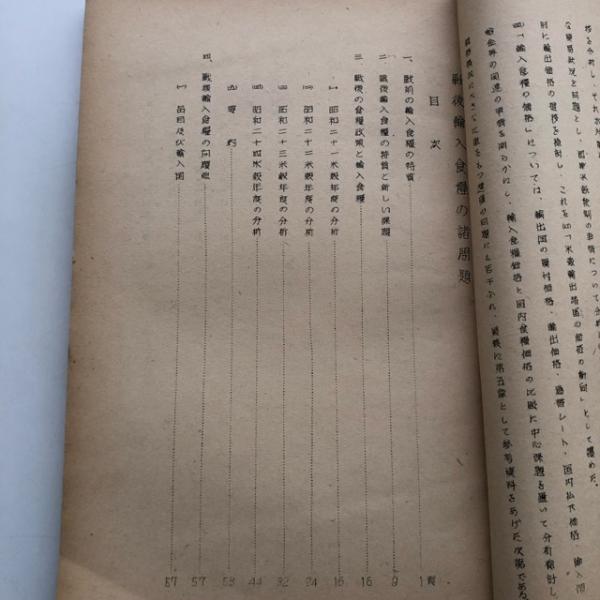 格を分析し、それ
な貿易状況を問題とし、
別に輸出価格の推移を検討し、これを⑶「米穀輸出諸国の価格の動向」として纏めた。
⑷「輸入食糧の価格」については、輸出国の農村価格、輸出価格、為替レート、国内払下価格、輸入補
給金等の関連の事情を明らかにし、輸入食糧価格と国内食糧価格の比較に中心課題を置いて分析検討し、
の問題にも若干ふれ、最後に第五章として参考資料をあげた次第である
戦後輸入食糧の諸問題
目次
一、戦前の輸入食糧の特質 1頁
二、戦後輸入食糧の特質と新しい課題 9
三、戦後の食糧政策と輸入食糧 16
㈠ 昭和二十一米穀年度の分析 16
㈡ 昭和二十二米穀年度の分析 24
㈢ 昭和二十三米穀年度の分析 32
㈣ 昭和二十四米穀年度の分析 44
㈤ 要約 53
四、戦後輸入食糧の問題点 57
㈠ 品目及び輸入国 57